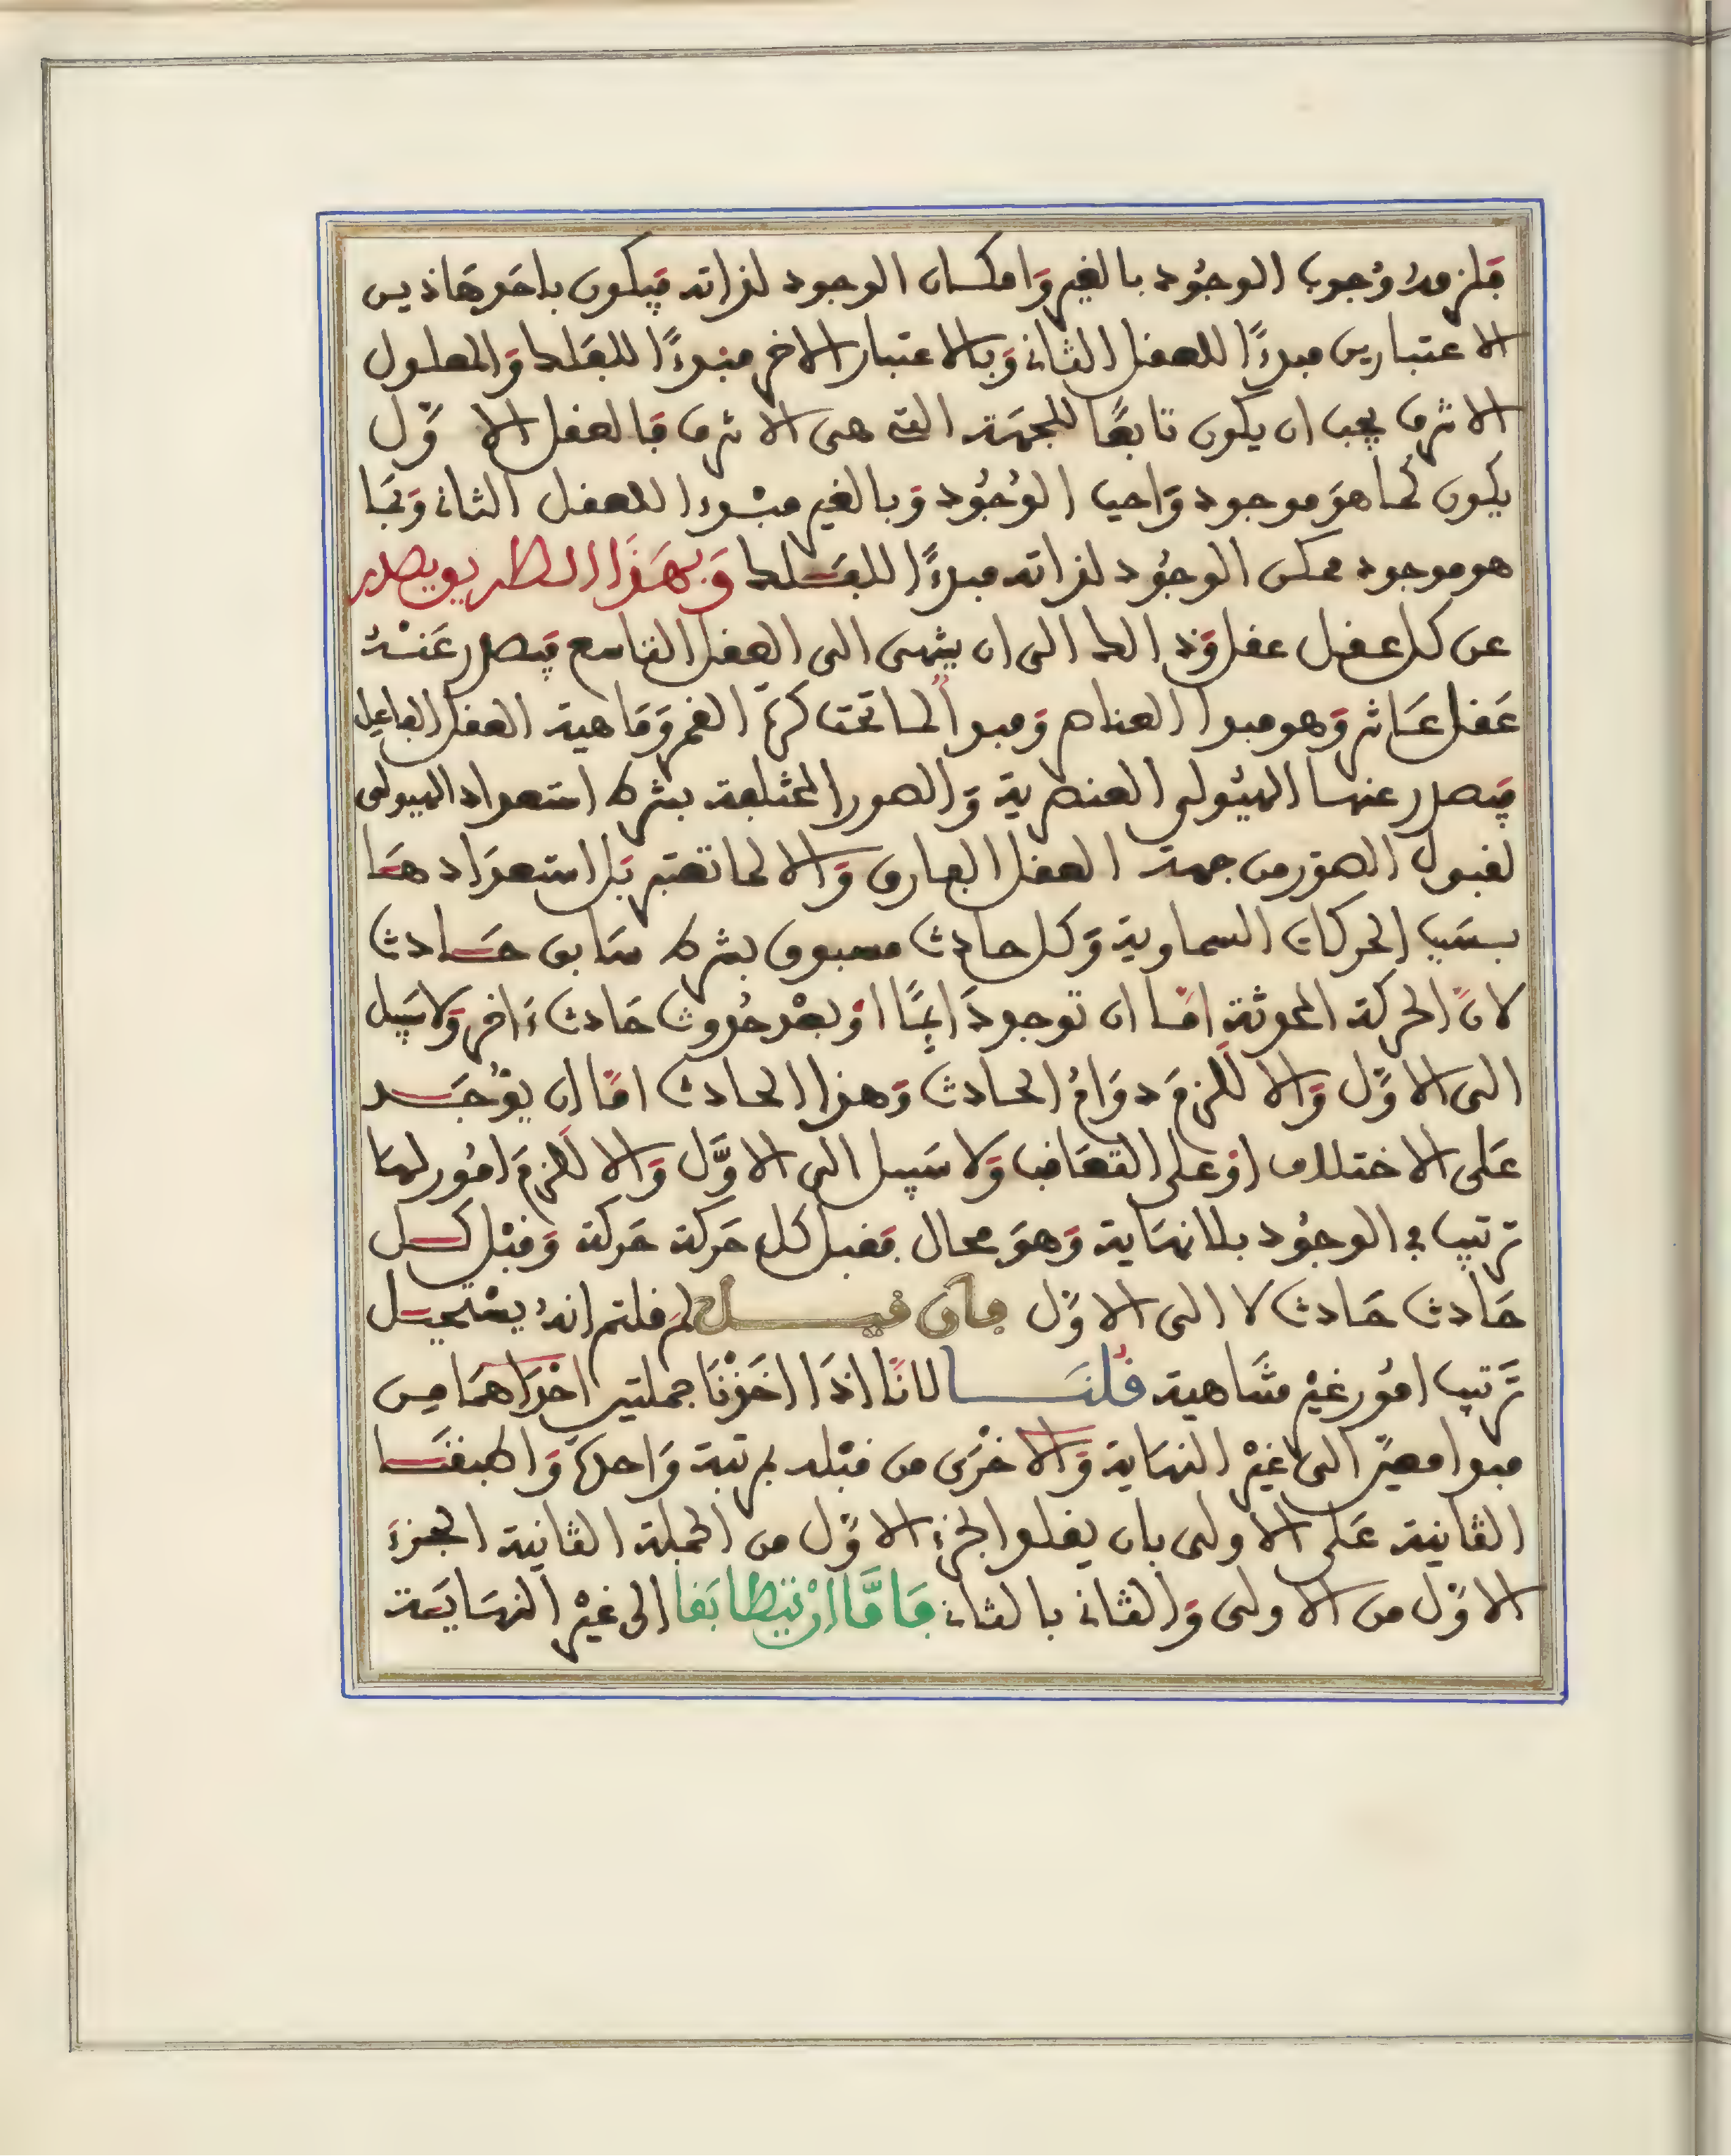 فلزمه وُجوب الوجُود بالغير وَامكان الوجود لذاته فيكون باحد هَاذين
الاعتبارين مبدءًا للعقل الثاني وَبالاعتبار الاخر مبْدءًا للفَلك وَالمعلول
الاشرف يجب ان يكون تابعًا للجهَة التي هي الاشرف فَالعقل الاوَّل
يكون بما هوَ موجود وَاجب الوُجُود وَبالغير مبْدءا للعقل الثاني وَبمَا
هو موجود ممكن الوجُود لذاته مبدءًا للفَلك وَبهَذَا الطريق يصدر
عن كل عقل عقل وَفلك الى ان ينتهى الى العقل التاسع فيَصدر عَنْهُ
عَقل عَاشر وَهو مبدأ العناصر وَمبدأ لما تحت كرة القمر وَمَاهية العقل الفاعل
فيَصدر عنها الهيُولى العنصرية وَالصور المختلفة بشرط استعداد الهيولى
لقبول الصوَر من جهة العقل الفارق وَالا لما تغير بَل استعدَادهَا
بسبَب الحركات السماوية وَكل حادث مسبوق بشرط سَابق حَادث
لانَّ الحركة المحدثة امَّا ان توجد دَائِمًا اوْ بعْد حُدوث حَادث ءَاخر وَلا سَبيل
الى الاوَّل وَالا لَلزمَ دوَامُ الحادث وَهذا الحادث امَّا ان يوْجَد
عَلى الاختلاف اوْ على التعَاقب وَلا سَبيل الى الاوَّل وَالا لَلزمَ امُور لهَا
ترتيب في الوجُود بلا نهَاية وَهوَ محال فقبل كل حَركة حَركة وَقبْل كل
حَادث حَادث لا الى الاوَّل فان قيل لمَ قلتم انهُ يستحيل
تَرتيب امُور غيْر متَنَاهية قُلنَا لانَّا اذَا اخَذْنَا جملتين احْدَاهمَا من
مبدا معيَّن الى غيْر النهَاية وَالاخْرَى من قبْله بمرتبة وَاحدة وَاطبقنَا
الثانية عَلى الاولى بان يقابل الجزء الاوَّل من الجملة الثانية الجزء
الاوَّل من الاولى وَالثاني بالثاني فَامَّا انْ يتطَابَقا الى غيْر النهَايَة